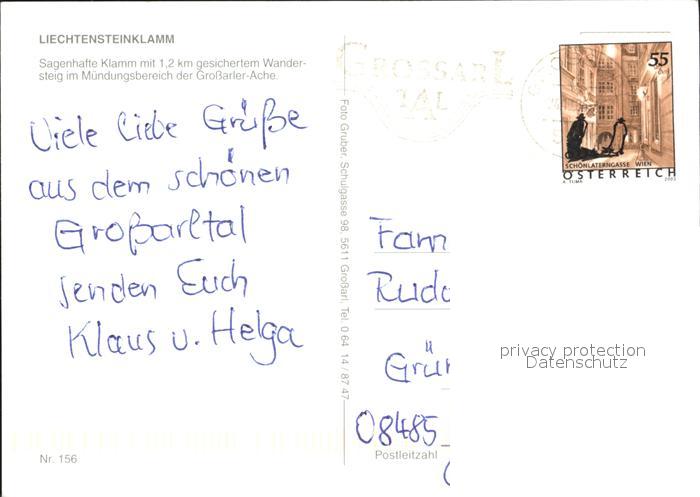 LIECHTENSTEINKLAMM
Sagenhafte Klamm mit 1,2 km gesichertem Wander-
steig im Mündungsbereich der Großarler-Ache.
Viele liebe Grüße
aus dem schönen
Großarltal
senden Euch
Klaus u. Helga
Nr. 156
Foto Gruber, Schulgasse 98, 5611 Großarl, Tel. 0 64 14 / 87 47
GROSSARL
TAL
55
SCHÖNLATERNGASSE WIEN
ÖSTERREICH
2003
Fam
Rudo
Grün
08485
Postleitzahl
privacy protection
Datenschutz